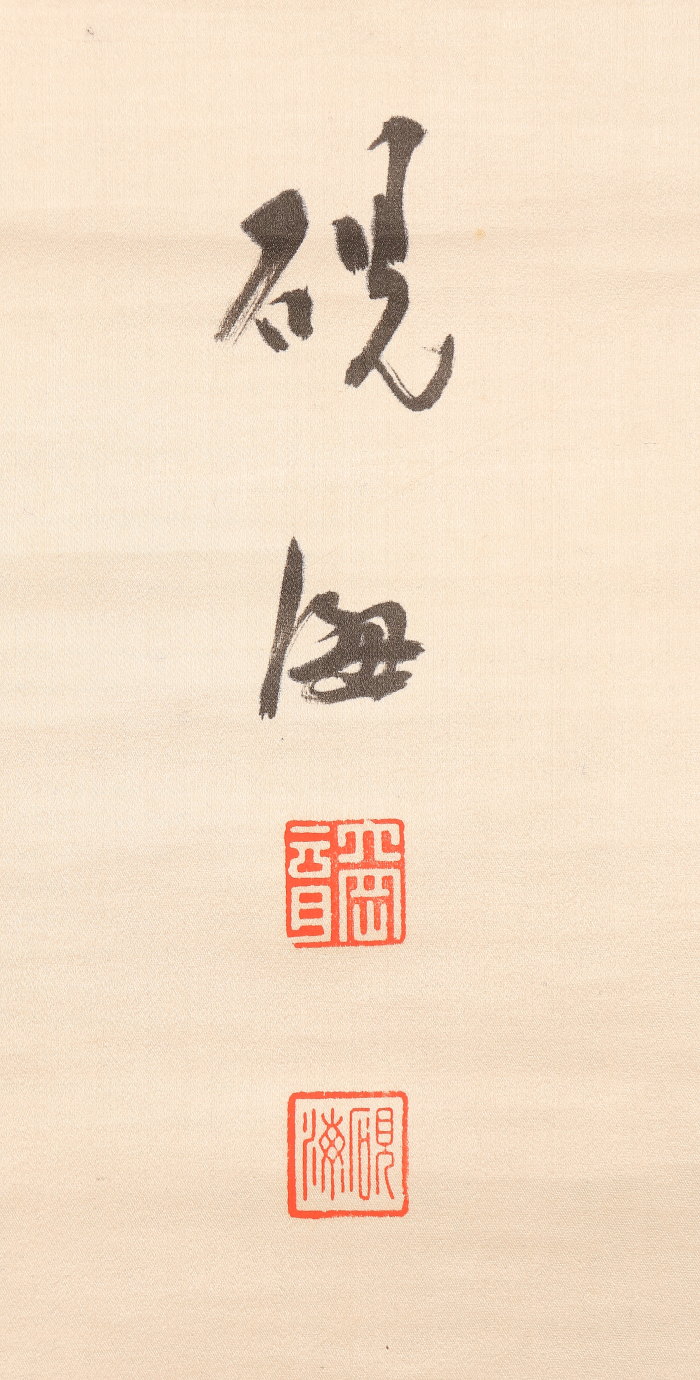 硯
海
硯海